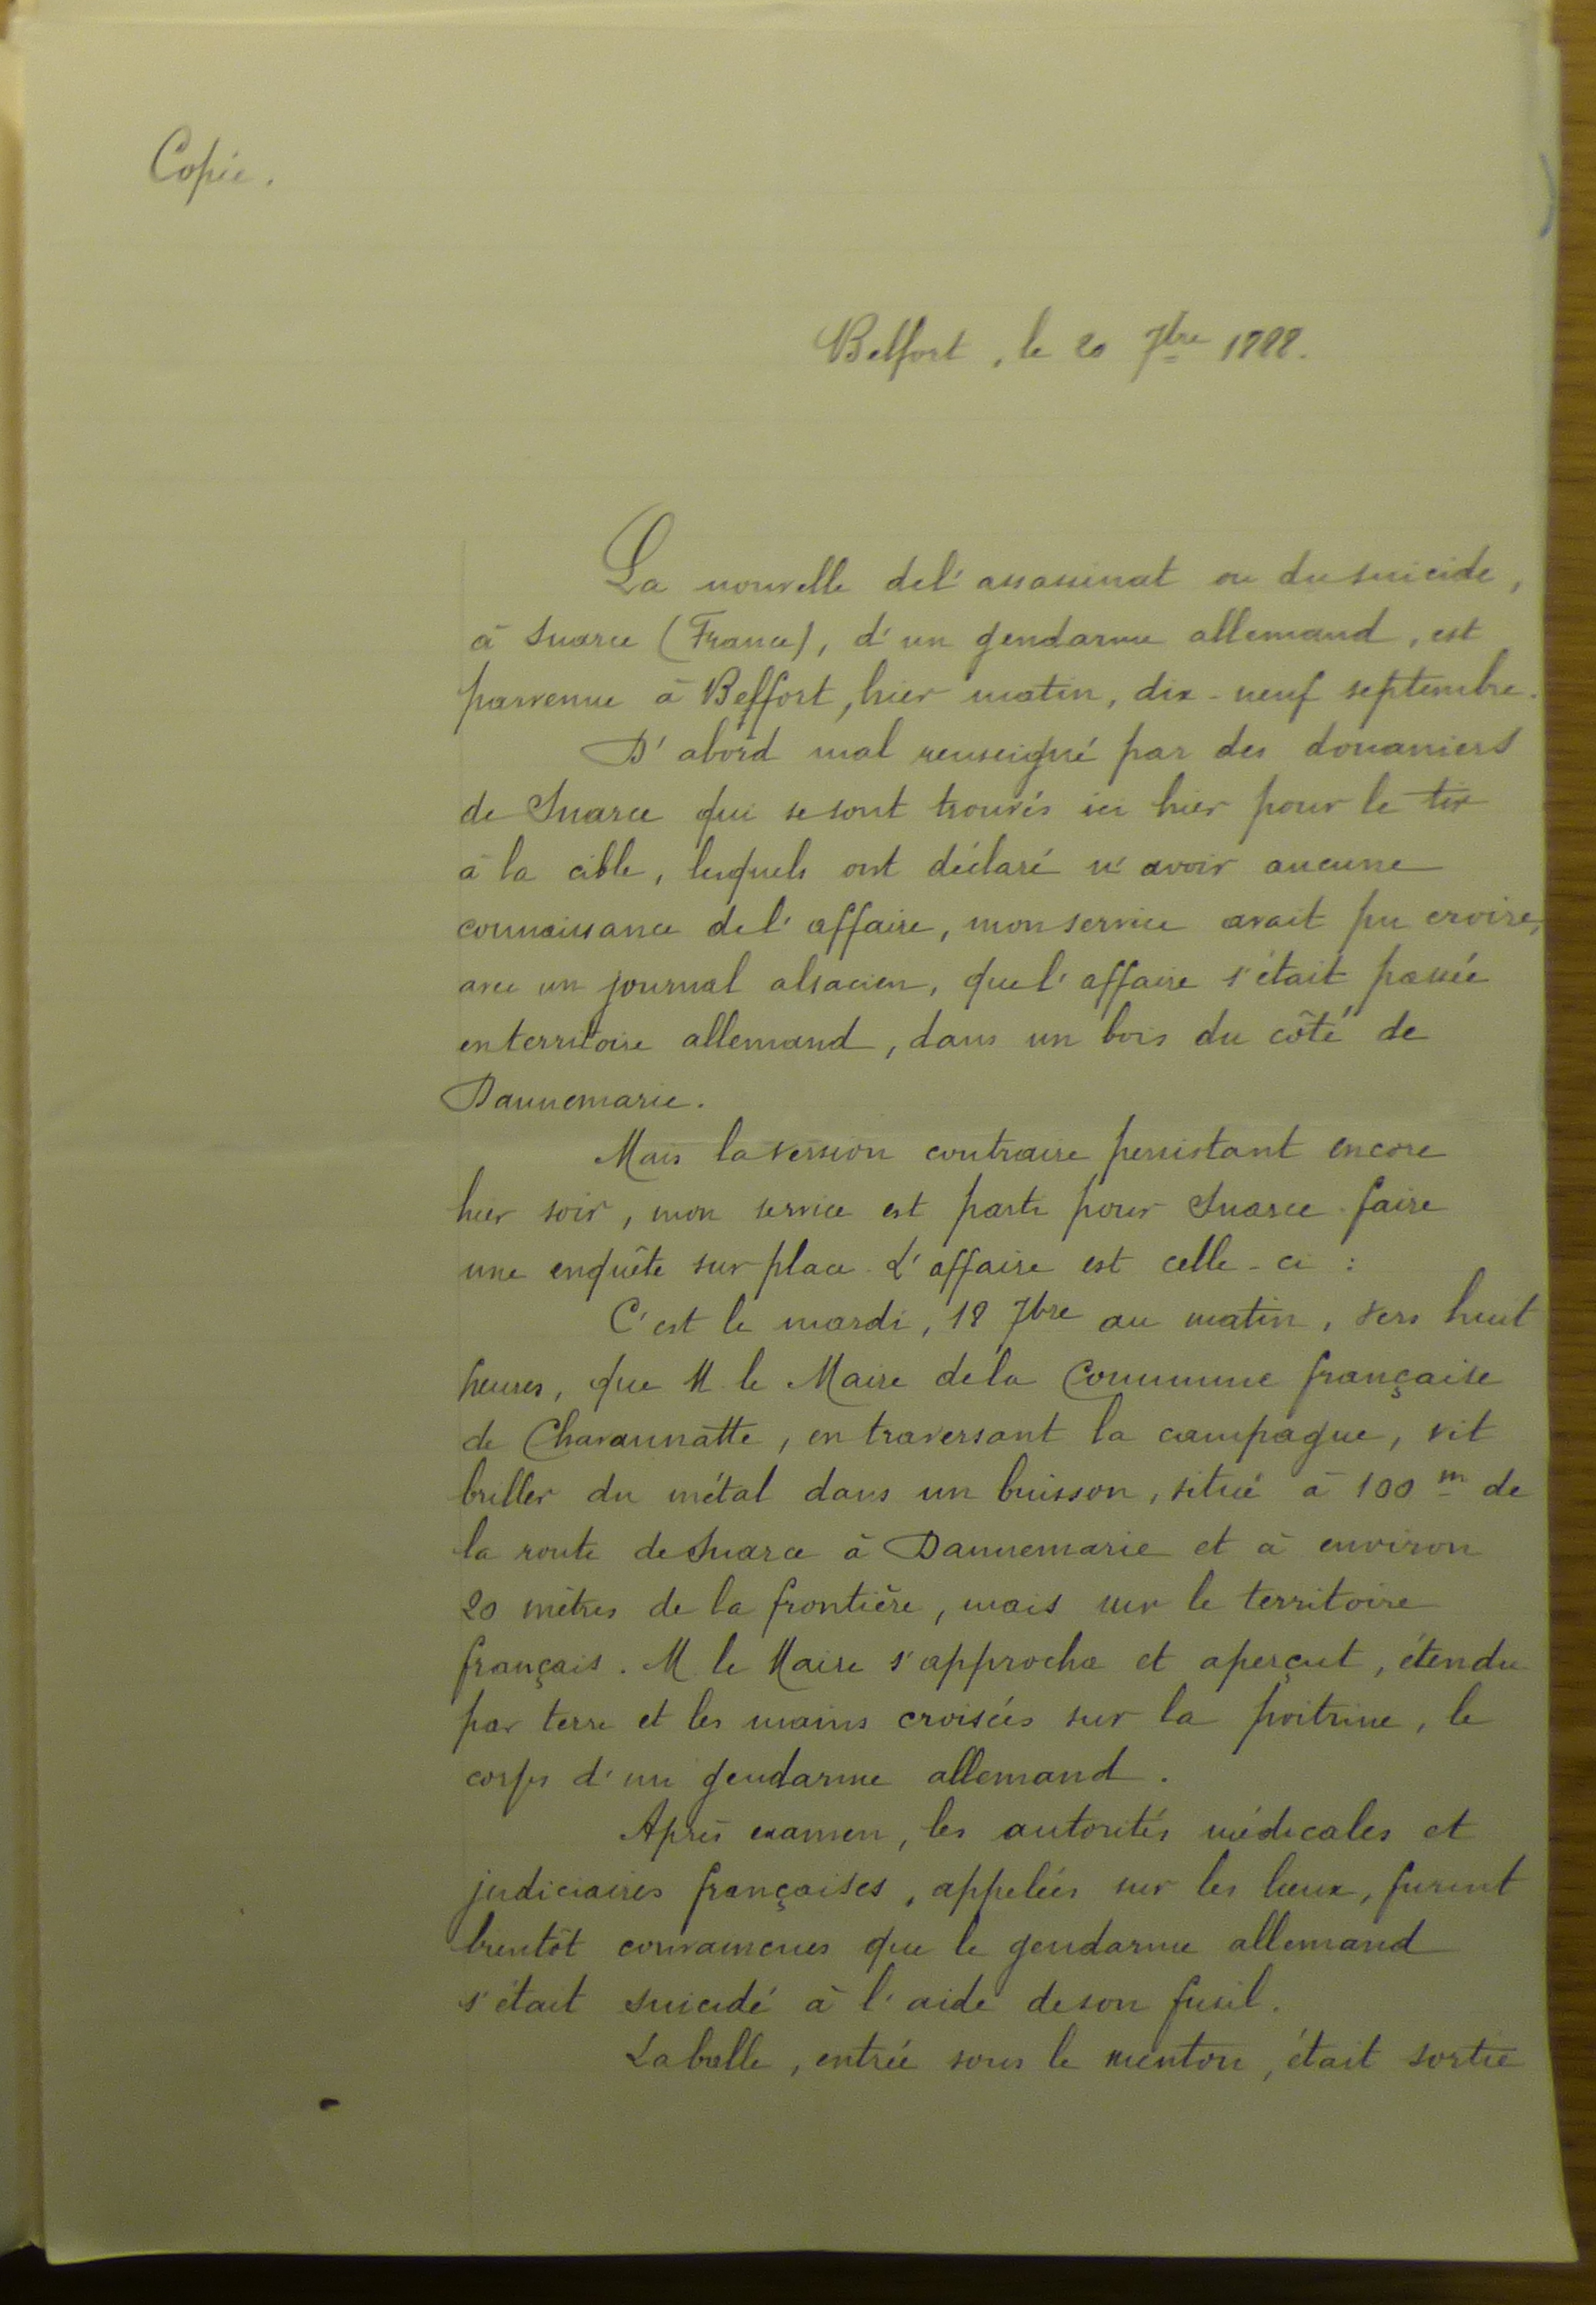 Copie.
Belfort, le 20 7bre 1888.
La nouvelle de l'assassinat ou du suicide,
à Suarce (France), d'un gendarme allemand, est
parvenue à Belfort, hier matin, dix-neuf septembre.
D'abord mal renseigné par des douaniers
de Suarce qui se sont trouvés ici hier pour le tir
à la cible, lesquels ont déclaré n'avoir aucune
connaissance de l'affaire, mon service avait pu croire,
avec un journal alsacien, que l'affaire s'était passée
en territoire allemand, dans un bois du côté de
Dannemarie.
Mais la version contraire persistant encore
hier soir, mon service est parti pour Suarce faire
une enquête sur place. L'affaire est celle-ci :
C'est le mardi, 18 7bre au matin, vers huit
heures, que M. le Maire de la Commune française
de Chavannatte, en traversant la campagne, vit
briller du métal dans un buisson, situé à 100 m de
la route de Suarce à Dannemarie et à environ
20 mètres de la frontière, mais sur le territoire
français. M. le Maire s'approcha et aperçut, étendu
par terre et les mains croisées sur la poitrine, le
corps d'un gendarme allemand.
Après examen, les autorités médicales et
judiciaires françaises, appelées sur les lieux, furent
bientôt convaincues que le gendarme allemand
s'était suicidé à l'aide de son fusil.
La balle, entrée sous le menton, était sortie